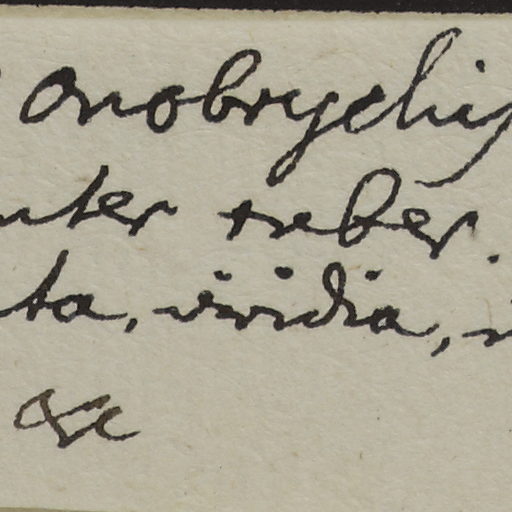 onobrychis
nter tuber.
ta, viridia,